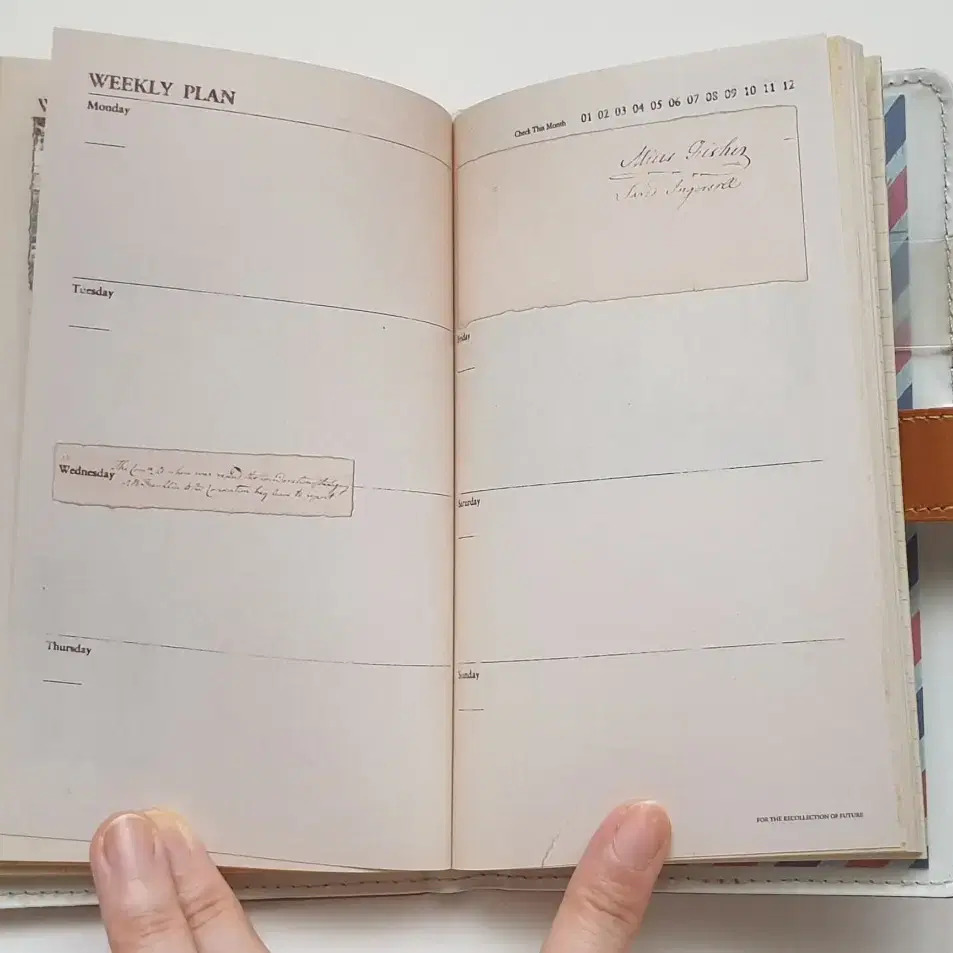 WEEKLY PLAN
Monday
Tuesday
Wednesday
Thursday
Check This Month 01 02 03 04 05 06 07 08 09 10 11 12
Miers Fisher
Jared Ingersoll
Friday
Saturday
Sunday
FOR THE RECOLLECTION OF FUTURE